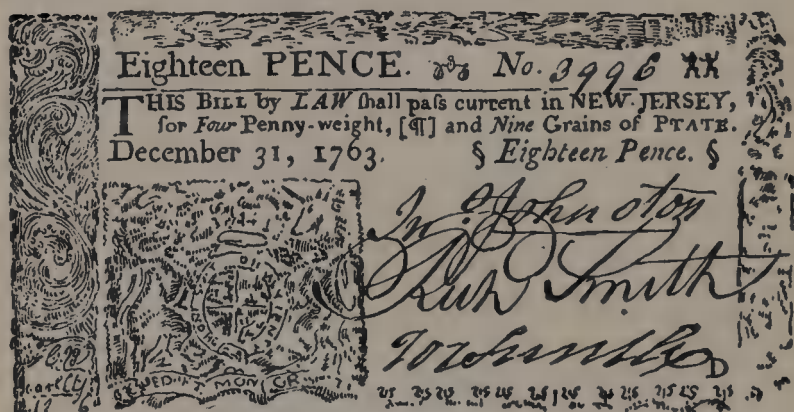 Eighteen PENCE. No. 3996
THIS BILL by LAW ſhall paſs current in NEW-JERSEY,
for Four Penny-weight, [¶] and Nine Grains of PTATE.
December 31, 1763. § Eighteen Pence. §
Jnº. Johnston
Rich Smith